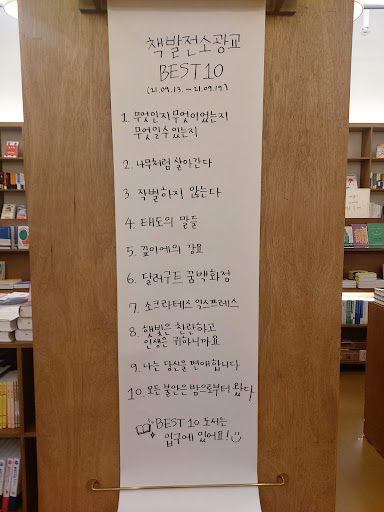 책발전소광교
BEST 10
(21.09.13. - 21.09.19.)
1. 무엇인지 무엇이었는지
무엇일 수 있는지
2. 나무처럼 살아간다
3. 작별하지 않는다
4. 태도의 말들
5. 깊이에의 강요
6. 달러구트 꿈백화점
7. 소크라테스 익스프레스
8. 햇빛은 찬란하고
인생은 귀하니까요
9. 나는 당신을 편애합니다
10. 모든 불안은 밤으로부터 왔다
BEST 10 도서는
입구에 있어요!